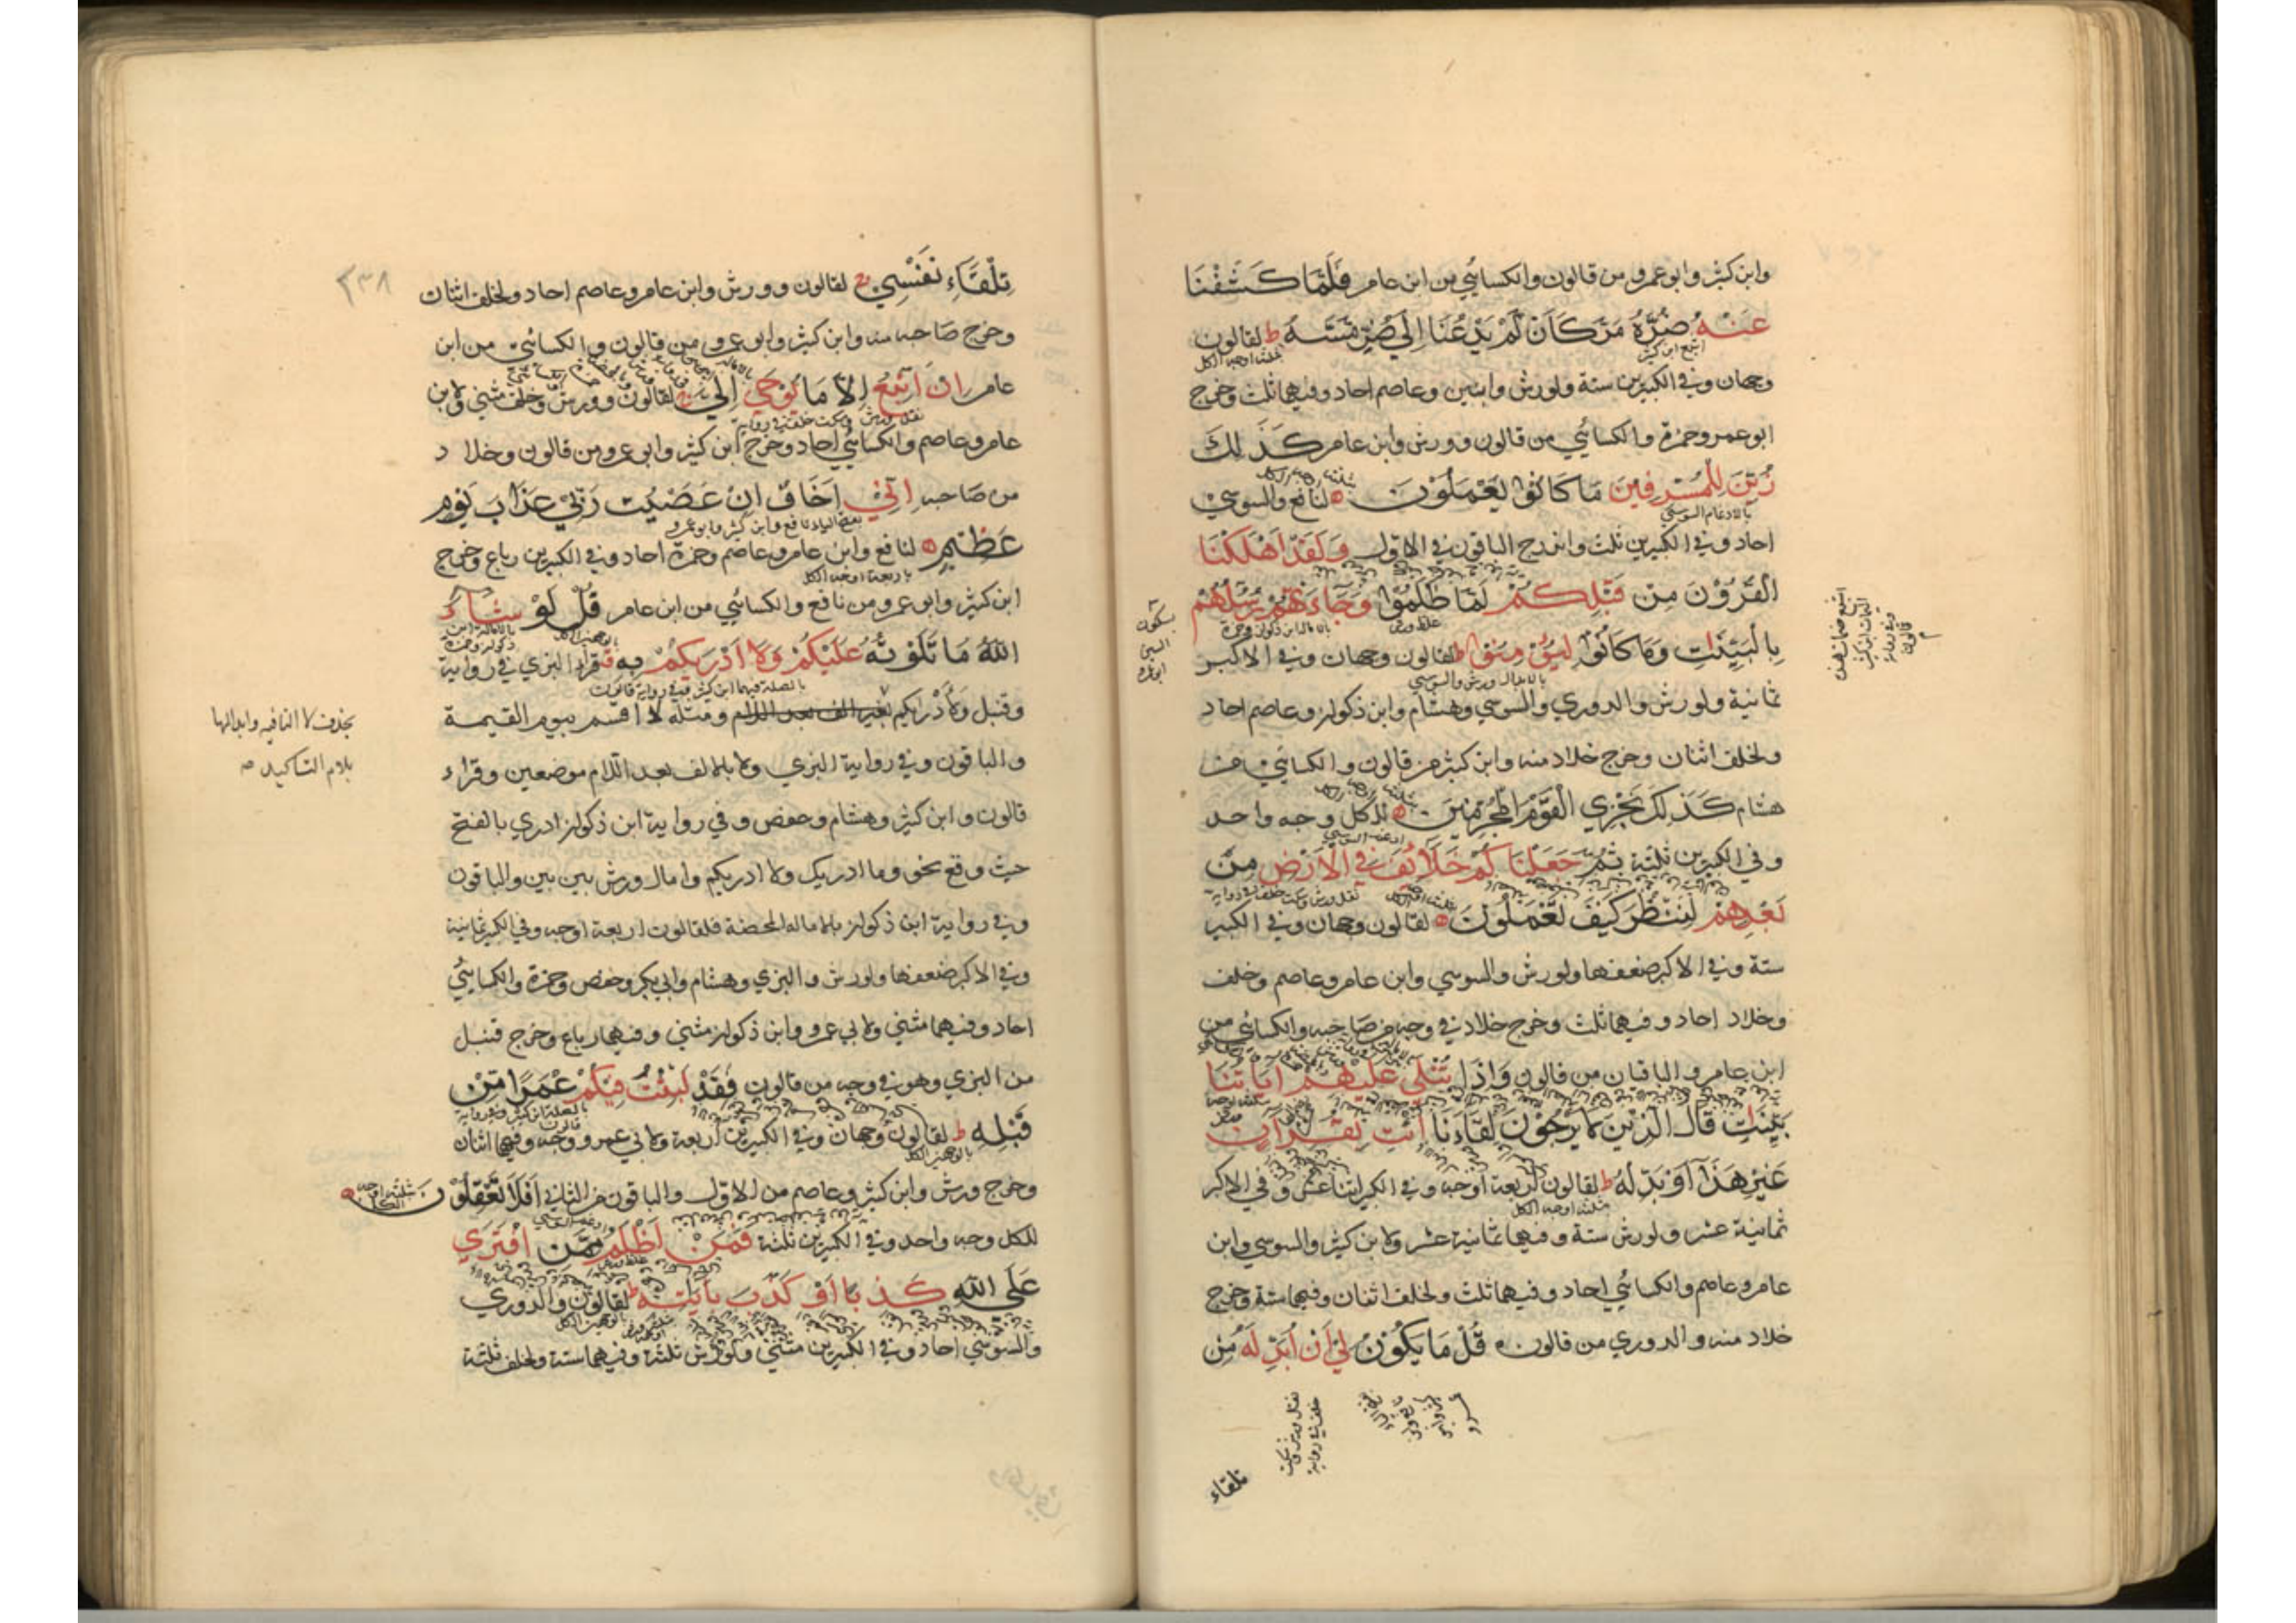 وابن كثير وابو عمرو من قالون والكسائي من ابن عامر فَلَمَّا كَشَفْنَا
عَنْهُ ضُرَّهُ مَرَّ كَاَنْ لَمْ يَدْعُنَا اِلٰي ضُرٍّ مَسَّهُ ط لقالون
اشبع ابن كثير
وجهان وفي الكبيرين ستة ولورش واثنين وعاصم احاد وفيهما ثلث وخرج
ابو عمرو وحمزة والكسائي من قالون وورش وابن عامر كَذٰلِكَ
زُيِّنَ لِلْمُسْرِفِينَ مَا كَانُوْا يَعْمَلُوْنَ لنافع والسوسي
بالادغام السوسي
احاد وفي الكبيرين ثلث واندرج الباقون في الاول وَلَقَدْ اَهْلَكْنَا
الْقُرُوْنَ مِنْ قَبْلِكُمْ لَمَّا ظَلَمُوْا وَجَاءَتْهُمْ رُسُلُهُمْ
بِالْبَيِّنٰتِ وَمَا كَانُوْا لِيُؤْمِنُوْا ط لقالون وجهان وفي الاكبر
بالابدال ورش والسوسي
ثمانية ولورش والدوري والسوسي وهشام وابن ذكوان وعاصم احاد
ولخلف اثنان وخرج خلاد منه وابن كثير من قالون والكسائي من
هشام كَذٰلِكَ نَجْزِي الْقَوْمَ الْمُجْرِمِيْنَ للكل وجه واحد
وفي الكبيرين ثلثة ثُمَّ جَعَلْنَا كُمْ خَلَائِفَ فِي الْاَرْضِ مِنْ
بَعْدِهِمْ لِنَنْظُرَ كَيْفَ تَعْمَلُوْنَ لقالون وجهان وفي الكبير
ستة وفي الاكبر ضعفها ولورش والسوسي وابن عامر وعاصم وخلف
وخلاد احاد وفيهما ثلث وخرج خلاد في وجه من صاحبه والكسائي من
ابن عامر والباقيان من قالون وَاِذَا تُتْلٰي عَلَيْهِمْ اٰيَاتُنَا
بَيِّنٰتٍ قَالَ الَّذِيْنَ لَا يَرْجُوْنَ لِقَاءَنَا ائْتِ بِقُرْاٰنٍ
غَيْرِ هٰذَا اَوْ بَدِّلْهُ ط لقالون اربعة اوجه وفي الكبير اثنا عشر وفي الاكبر
ثلثة اوجه الكل
ثمانية عشر ولورش ستة وفيهما ثمانية عشر ولابن كثير والسوسي وابن
عامر وعاصم والكسائي احاد وفيهما ثلث ولخلف اثنان وفيهما ستة وخرج
خلاد منه والدوري من قالون قُلْ مَا يَكُوْنُ لِيْ اَنْ اُبَدِّلَهُ مِنْ
نقل ورش سكت
خلف في رواية
تلقاء
اشبع ضمات هذه
الميمات ابن كثير
وفي رواية
قالون
سكون
السين
ابو عمرو
٢٣٨
تِلْقَاءِ نَفْسِي لقالون وورش وابن عامر وعاصم احاد ولخلف اثنان
وخرج صاحبه منه وابن كثير وابو عمرو من قالون والكسائي من ابن
عامر اِنْ اَتَّبِعُ اِلَّا مَا يُوْحٰي اِلَيَّ لقالون وورش وخلف مثني ولابن
نقل ورش وسكت خلف في رواية
عامر وعاصم والكسائي احاد وخرج ابن كثير وابو عمرو من قالون وخلاد
من صاحبه اِنِّيْ اَخَافُ اِنْ عَصَيْتُ رَبِّيْ عَذَابَ يَوْمٍ
بفتح الياء نافع وابن كثير وابو عمرو
عَظِيْمٍ لنافع وابن عامر وعاصم وحمزة احاد وفي الكبيرين رباع وخرج
باربعة اوجه الكل
ابن كثير وابو عمرو من نافع والكسائي من ابن عامر قُلْ لَوْ شَاءَ
اللّٰهُ مَا تَلَوْتُهُ عَلَيْكُمْ وَلَا اَدْرٰيكُمْ بِهِ قراء البزي في رواية
بالصلة فيهما ابن كثير وفي رواية قالون
وقنبل ولادريكم بغير الف بعد اللام ومثله لا اقسم بيوم القيمة
والباقون وفي رواية البزي ولا بالالف بعد اللام موضعين وقراء
قالون وابن كثير وهشام وحفص وفي رواية ابن ذكوان ادري بالفتح
حيث وقع نحو وما ادريك ولا ادريكم وامال ورش بين بين والباقون
وفي رواية ابن ذكوان بالاماله المحضة فلقالون اربعة اوجه وفي الكبير ثمانية
وفي الاكبر ضعفها ولورش والبزي وهشام وابي بكر وحفص وحمزة والكسائي
احاد وفيهما مثني ولابي عمرو وابن ذكوان مثني وفيهما رباع وخرج قنبل
من البزي وهو في وجه من قالون فَقَدْ لَبِثْتُ فِيْكُمْ عُمَرًا مِّنْ
قَبْلِهِ ط لقالون وجهان وفي الكبيرين اربعة ولابي عمرو وجه وفيهما اثنان
بالوجهين الكل
وخرج ورش وابن كثير وعاصم من الاول والباقون من الثاني اَفَلَا تَعْقِلُوْنَ
ثلثة اوجه الكل
للكل وجه واحد وفي الكبيرين ثلثة فَمَنْ اَظْلَمُ مِمَّنِ افْتَرٰي
عَلَي اللّٰهِ كَذِبًا اَوْ كَذَّبَ بِاٰيٰتِهِ ط لقالون والدوري
والسوسي احاد وفي الكبيرين مثني ولورش ثلثة وفيهما ستة ولخلف ثلثة
بحذف لا النافيه وابدالها
بلام التاكيد صه